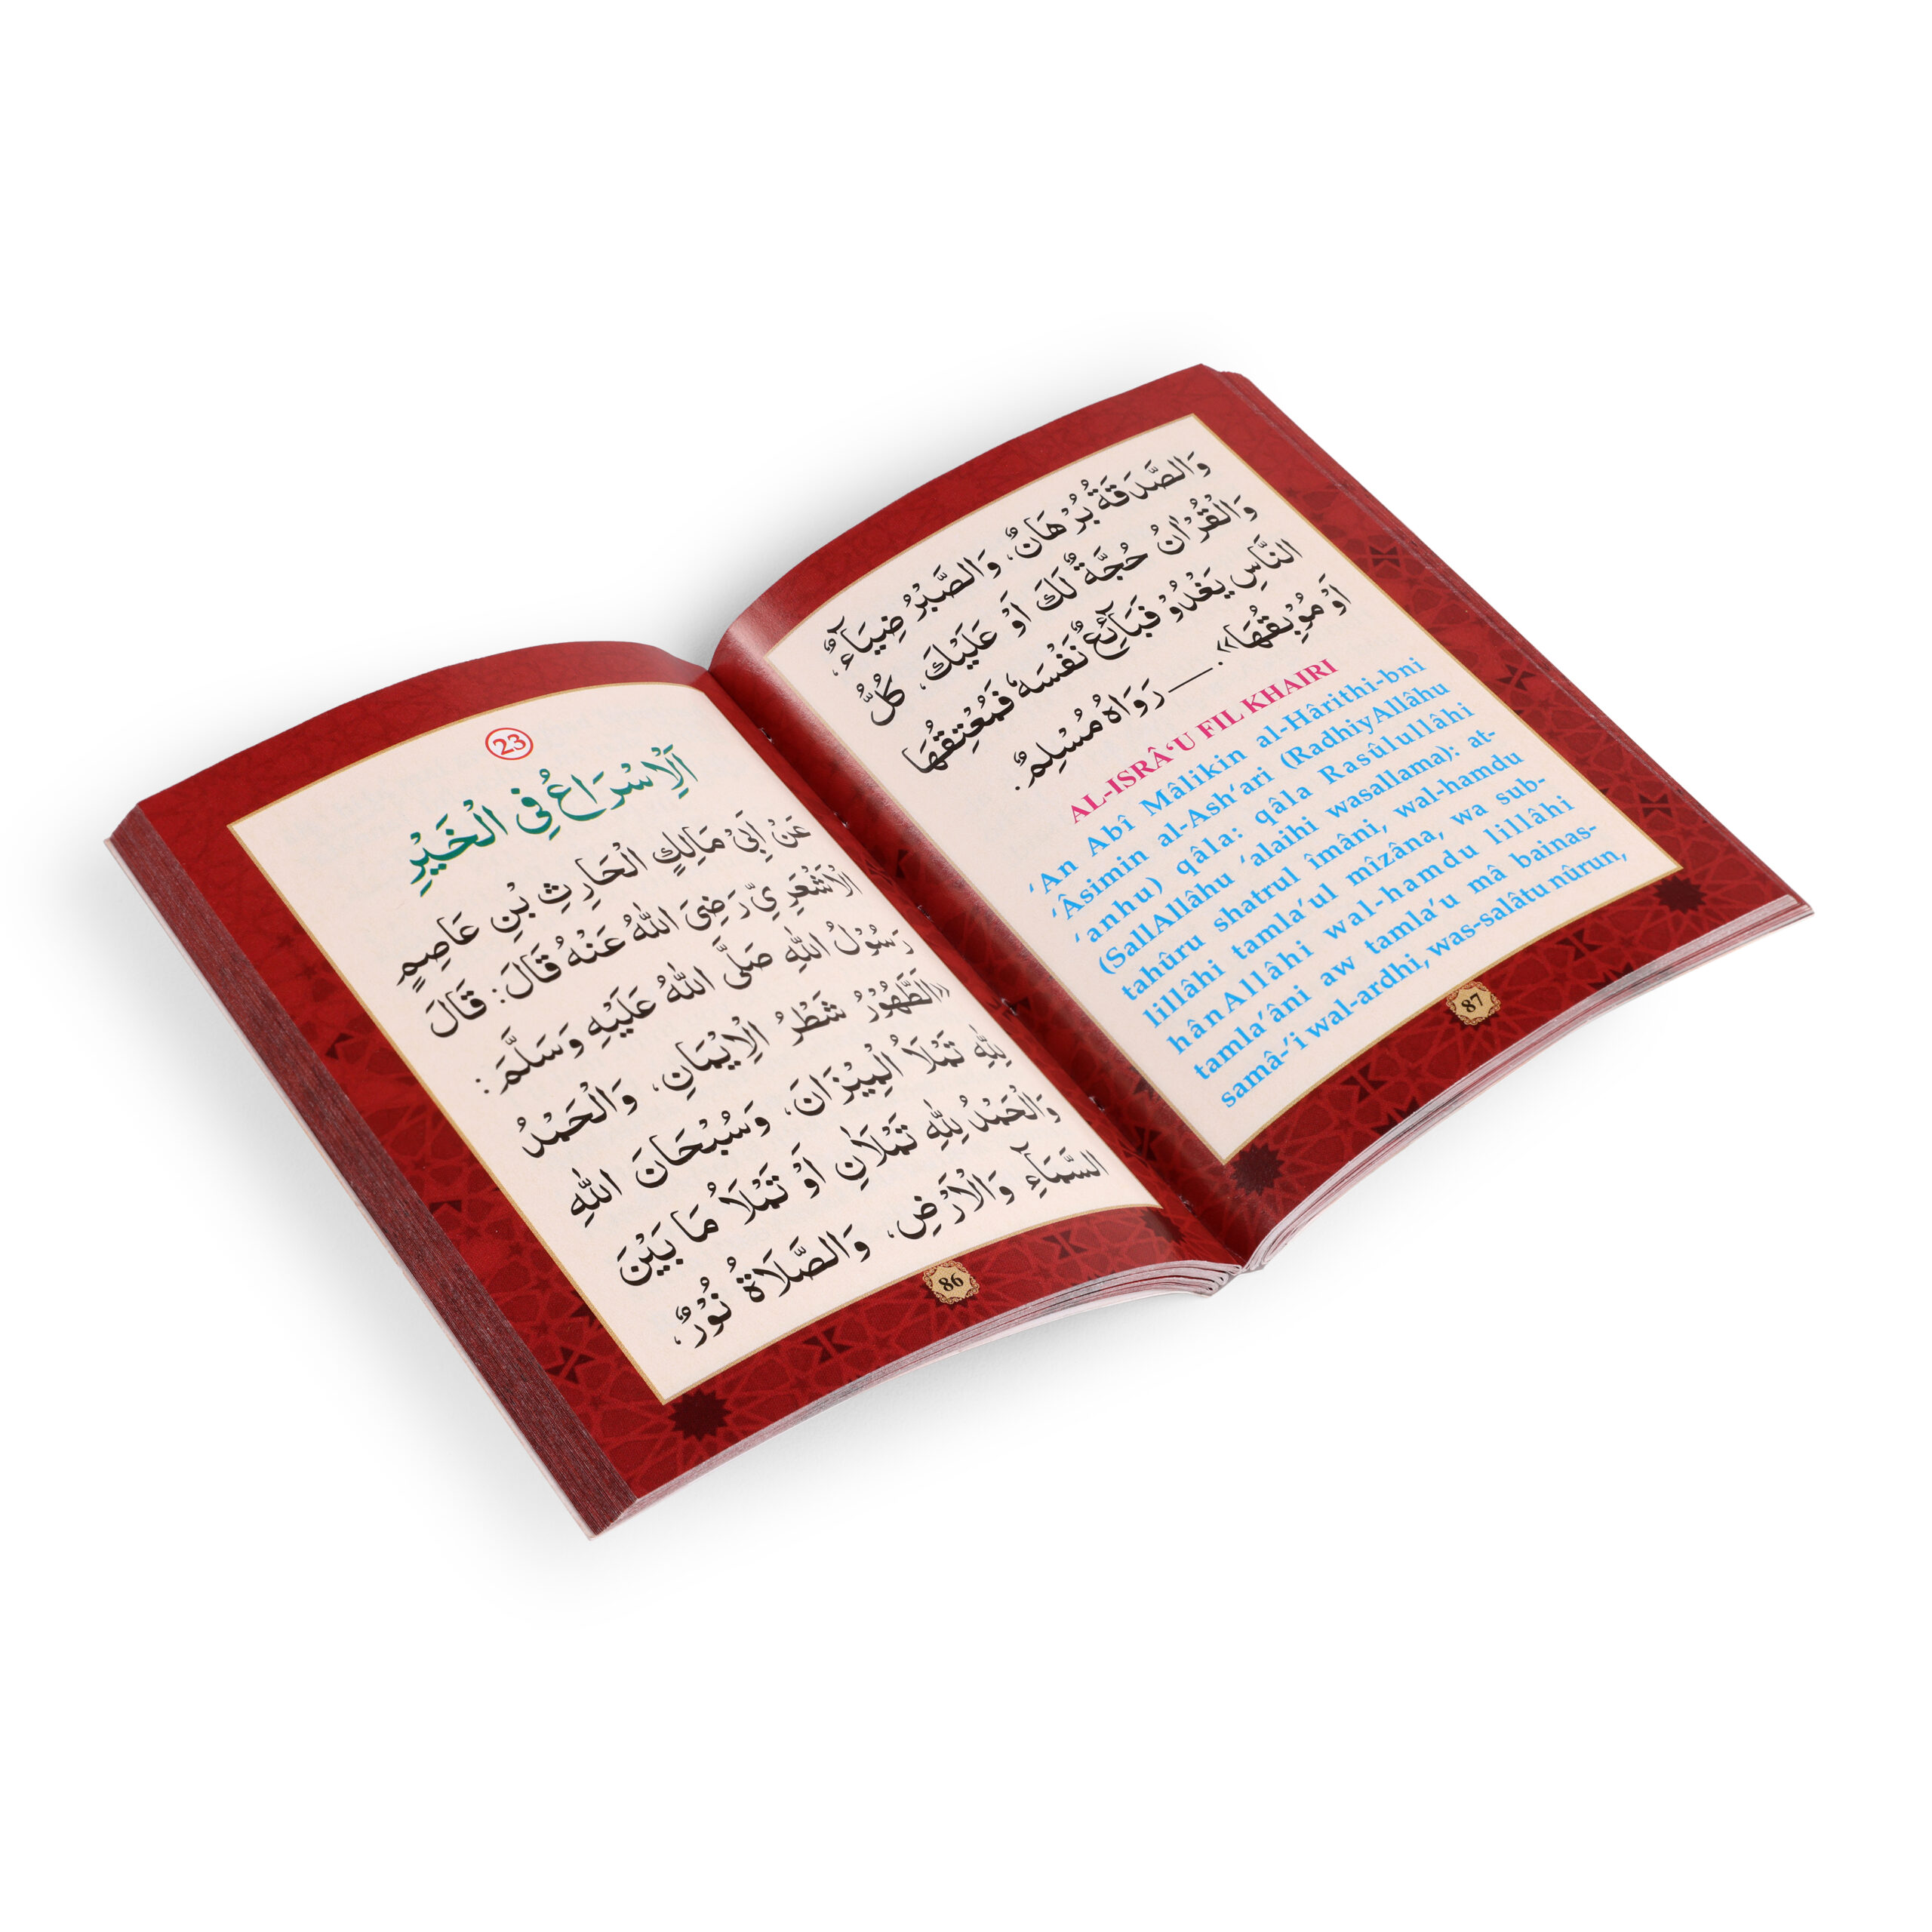 23
اَلْاِسْرَاعُ فِي الْخَيْرِ
عَنْ اَبِيْ مَالِكٍ الْحَارِثِ بْنِ عَاصِمٍ
الْاَشْعَرِيِّ رَضِيَ اللّٰهُ عَنْهُ قَالَ: قَالَ
رَسُوْلُ اللّٰهِ صَلَّى اللّٰهُ عَلَيْهِ وَسَلَّمَ:
«اَلطَّهُوْرُ شَطْرُ الْاِيْمَانِ، وَالْحَمْدُ
لِلّٰهِ تَمْلَاُ الْمِيْزَانَ، وَسُبْحَانَ اللّٰهِ
وَالْحَمْدُ لِلّٰهِ تَمْلَاٰنِ اَوْ تَمْلَاُ مَا بَيْنَ
السَّمَآءِ وَالْاَرْضِ، وَالصَّلَاةُ نُوْرٌ،
86
وَالصَّدَقَةُ بُرْهَانٌ، وَالصَّبْرُ ضِيَآءٌ،
وَالْقُرْاٰنُ حُجَّةٌ لَكَ اَوْ عَلَيْكَ، كُلُّ
النَّاسِ يَغْدُوْ فَبَآئِعٌ نَفْسَهٗ فَمُعْتِقُهَا
اَوْ مُوْبِقُهَا». — رَوَاهُ مُسْلِمٌ.
AL-ISRÂ‘U FIL KHAIRI
‘An Abî Mâlikin al-Hârithi-bni
‘Âsimin al-Ash‘ari (RadhiyAllâhu
‘anhu) qâla: qâla Rasûlullâhi
(SallAllâhu ‘alaihi wasallama): at-
tahûru shatrul Îmâni, wal-hamdu
lillâhi tamla’ul mîzâna, wa sub-
hânAllâhi wal-hamdu lillâhi
tamla’âni aw tamla’u mâ bainas-
samâ-’i wal-ardhi, was-salâtu nûrun,
87